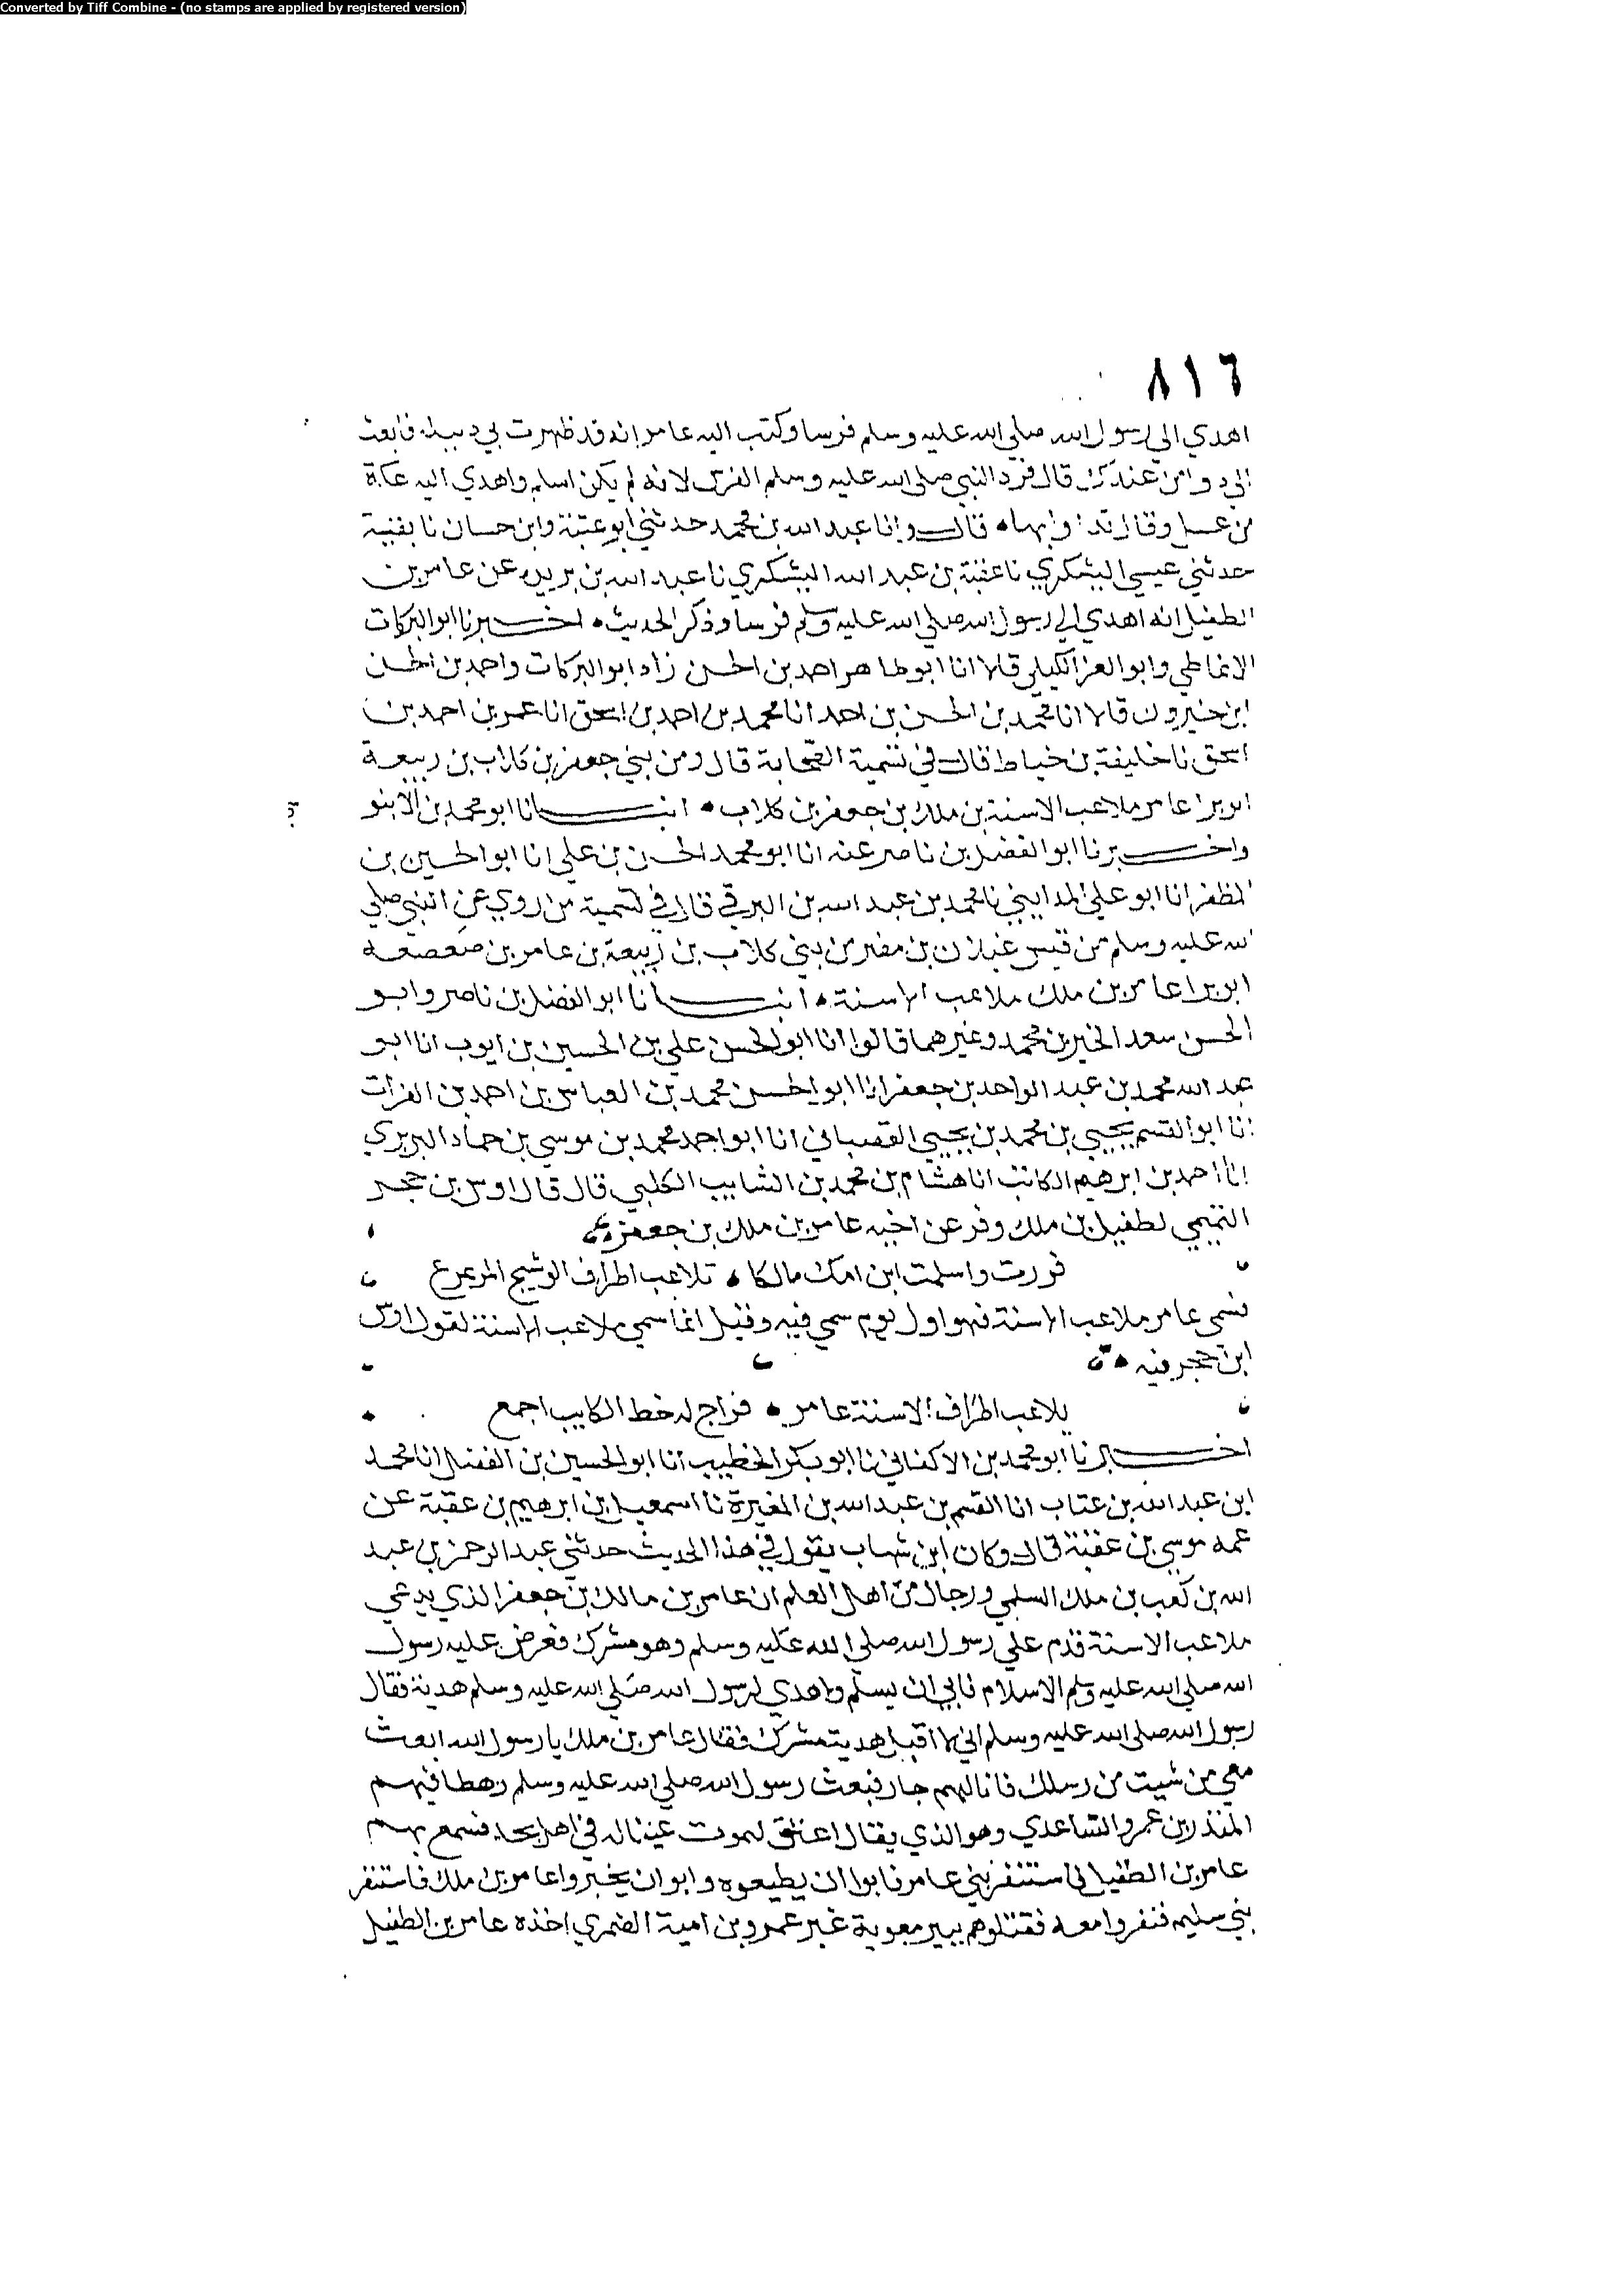 Converted by Tiff Combine - (no stamps are applied by registered version)
٨١٦
اهدي الي رسول الله صلي الله عليه وسلم فرسا وكتب اليه عامر انه قد ظهرت بي دبيلة فابعث
الي دوا من عندك قال فرد النبي صلي الله عليه وسلم الفرس لانه لم يكن اسلم واهدي اليه عكة
من عسل وقال تداوا بها قال وانا عبد الله بن محمد حدثني ابو عتبة وابن حسان نا بقية
حدثني عيسي اليشكري نا عقبة بن عبد الله اليشكري نا عبد الله بن بريده عن عامر بن
الطفيل انه اهدي الي رسول الله صلي الله عليه وسلم فرسا وذكر الحديث اخبرنا ابو البركات
الانماطي وابو العز الكيلي قالا انا ابو طاهر احمد بن الحسن زاد ابو البركات واحمد بن الحسن
ابن خيرون قالا انا محمد بن الحسن بن احمد انا محمد بن احمد بن اسحق انا عمر بن احمد بن
اسحق نا خليفة بن خياط قال في تسمية الصحابة قال ومن بني جعفر بن كلاب بن ربيعة
ابو برا عامر ملاعب الاسنة بن ملك بن جعفر بن كلاب انبانا ابو محمد بن الابنو
واخبرنا ابو الفضل بن ناصر عنه انا ابو محمد الحسن بن علي انا ابو الحسين بن
المظفر انا ابو علي المدايني نا محمد بن عبد الله بن البرقي قال في تسمية من روي عن النبي صلي
الله عليه وسلم من قيس غيلان بن مضر من بني كلاب بن ربيعة بن عامر بن صعصعه
ابو برا عامر بن ملك ملاعب الاسنة انبانا ابو الفضل بن ناصر وابو
الحسن سعد الخير بن محمد وغيرهما قالوا انا ابو الحسن علي بن الحسين بن ايوب انا ابو
عبد الله محمد بن عبد الواحد بن جعفر انا ابو الحسن محمد بن العباس بن احمد بن الفرات
انا ابو القسم يحيي بن محمد بن يحيي القصباني انا ابو احمد محمد بن موسي بن حماد البربري
انا احمد بن ابرهيم الكاتب انا هشام بن محمد بن السايب الكلبي قال قال اوس بن حجر
التميمي لطفيل بن ملك وفر عن اخيه عامر بن ملك بن جعفر
فررت واسلمت ابن امك مالكا تلاعب اطراف الوشيج المزعزع
فسمي عامر ملاعب الاسنة فهو اول يوم سمي فيه وقيل انما سمي ملاعب الاسنة لقول اوس
ابن حجر فيه
يلاعب اطراف الاسنة عامر فراح له خط الكايب اجمع
اخبرنا ابو محمد بن الاكفاني نا ابو بكر الخطيب انا ابو الحسين بن الفضل انا محمد
ابن عبد الله بن عتاب انا القسم بن عبد الله بن المغيرة نا اسمعيل بن ابرهيم بن عقبة عن
عمه موسي بن عقبة قال وكان ابن شهاب يقول في هذا الحديث حدثني عبد الرحمن بن عبد
الله بن كعب بن ملك السلمي ورجال من اهل العلم ان عامر بن مالك بن جعفر الذي يدعي
ملاعب الاسنة قدم علي رسول الله صلي الله عليه وسلم وهو مشرك فعرض عليه رسول
الله صلي الله عليه وسلم الاسلام فابي ان يسلم واهدي لرسول الله صلي الله عليه وسلم هدية فقال
رسول الله صلي الله عليه وسلم اني لا اقبل هدية مشرك فقال عامر بن ملك يا رسول الله ابعث
معي من شيت من رسلك فانا لهم جار فبعث رسول الله صلي الله عليه وسلم رهطا فيهم
المنذر بن عمرو الساعدي وهو الذي يقال اعنق ليموت عينا له في اهل نجد فسمع بهم
عامر بن الطفيل فاستنفر بني عامر فابوا ان يطيعوه وابوا ان يخبروا عامر بن ملك فاستنفر
بني سليم فنفروا معه فقتلوهم ببير معوية غير عمرو بن امية الضمري اخذه عامر بن الطفيل